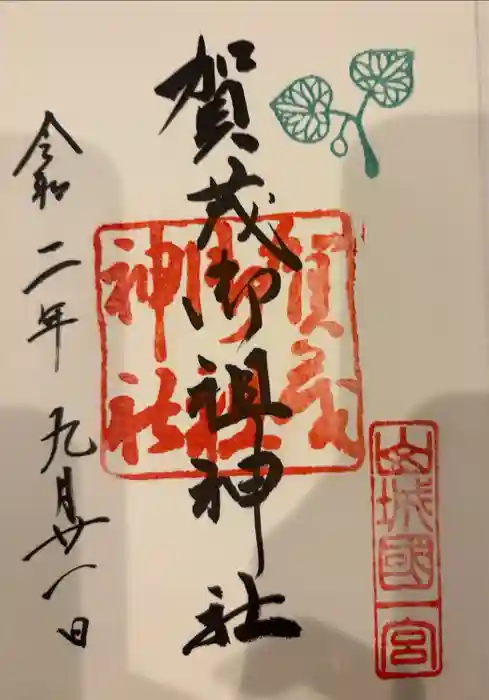 賀茂御祖神社
山城國一宮
賀茂御祖神社
令和二年九月廿一日